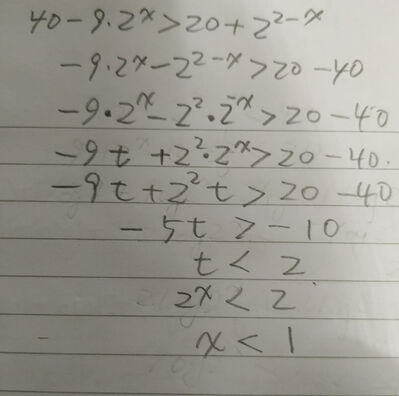 40 - 9·2^x > 20 + 2^{2-x}
-9·2^x - 2^{2-x} > 20 - 40
-9·2^x - 2^2·2^{-x} > 20 - 40
-9t + 2^2·2^x > 20 - 40.
-9t + 2^2 t > 20 - 40
-5t > -10
t < 2
2^x < 2
x < 1